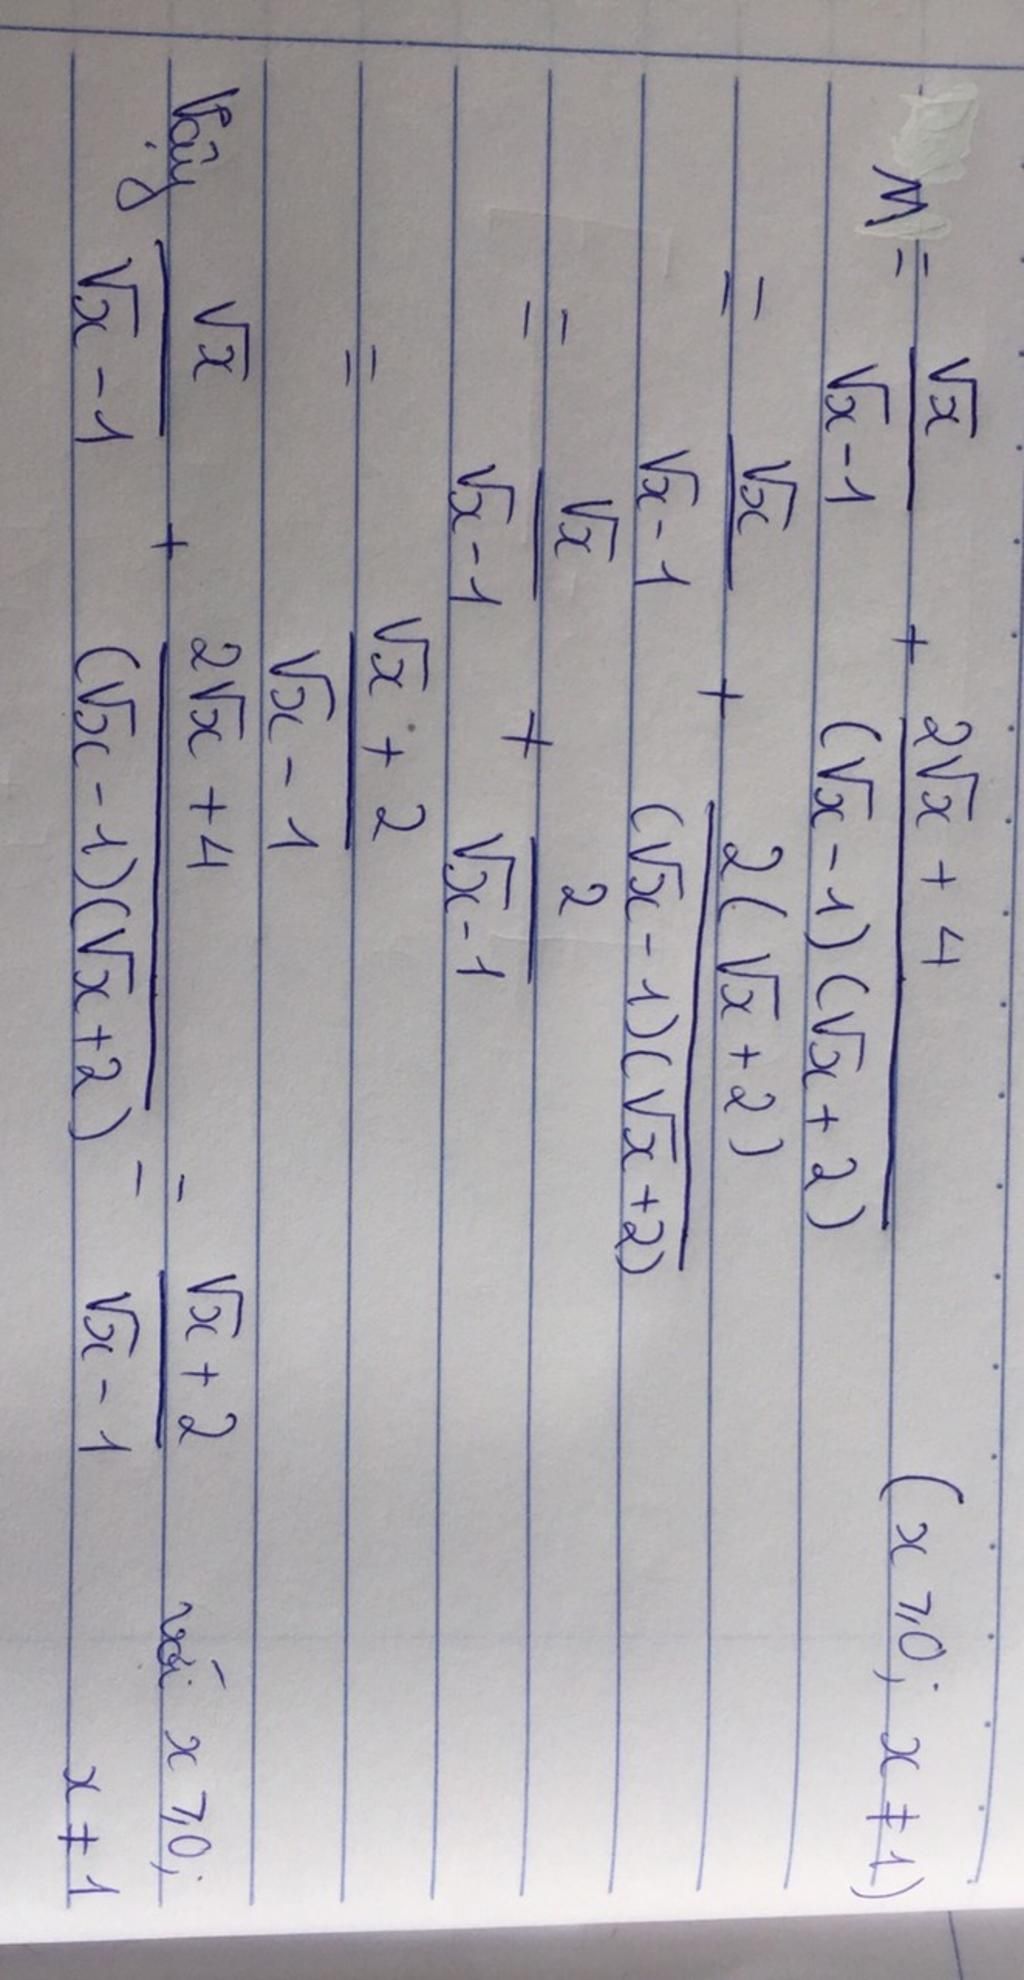 M = √x / (√x - 1) + (2√x + 4) / ((√x - 1)(√x + 2)) (x ⩾ 0; x ≠ 1)
= √x / (√x - 1) + 2(√x + 2) / ((√x - 1)(√x + 2))
= √x / (√x - 1) + 2 / (√x - 1)
= (√x + 2) / (√x - 1)
Vậy √x / (√x - 1) + (2√x + 4) / ((√x - 1)(√x + 2)) = (√x + 2) / (√x - 1) với x ⩾ 0;
x ≠ 1